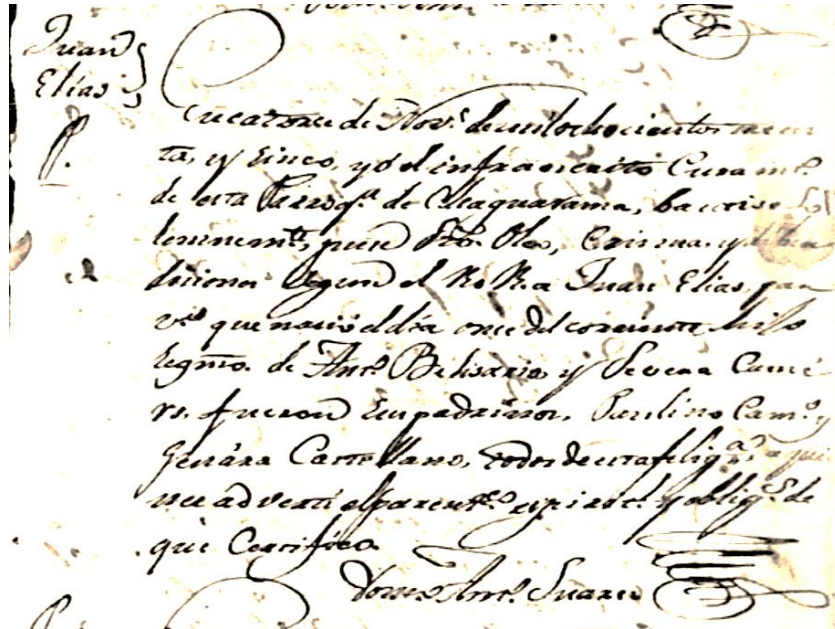 Juan
Elias
P.
En catorce de Nov.e de mil ochocientos trein
ta, y Cinco, yo el infraescrito Cura int.o
de esta Parroq.a de Chaguarama, bautisé So
lemnem.te, puse Sto. Oleo, Crisma, y di ben
diciones segun el R. R. a Juan Elias, par
v.o que nació el dia once del corriente, hijo
legmo. de Ant.o Belisario, y Severa
rs. fueron Empadrinos, Paulino Cam.o y
Genára Castellano, todos de esta felig.a a quie
nes advertí el parent.o espirit.l y oblig.s de
que Certifico.
Ant.o Suares